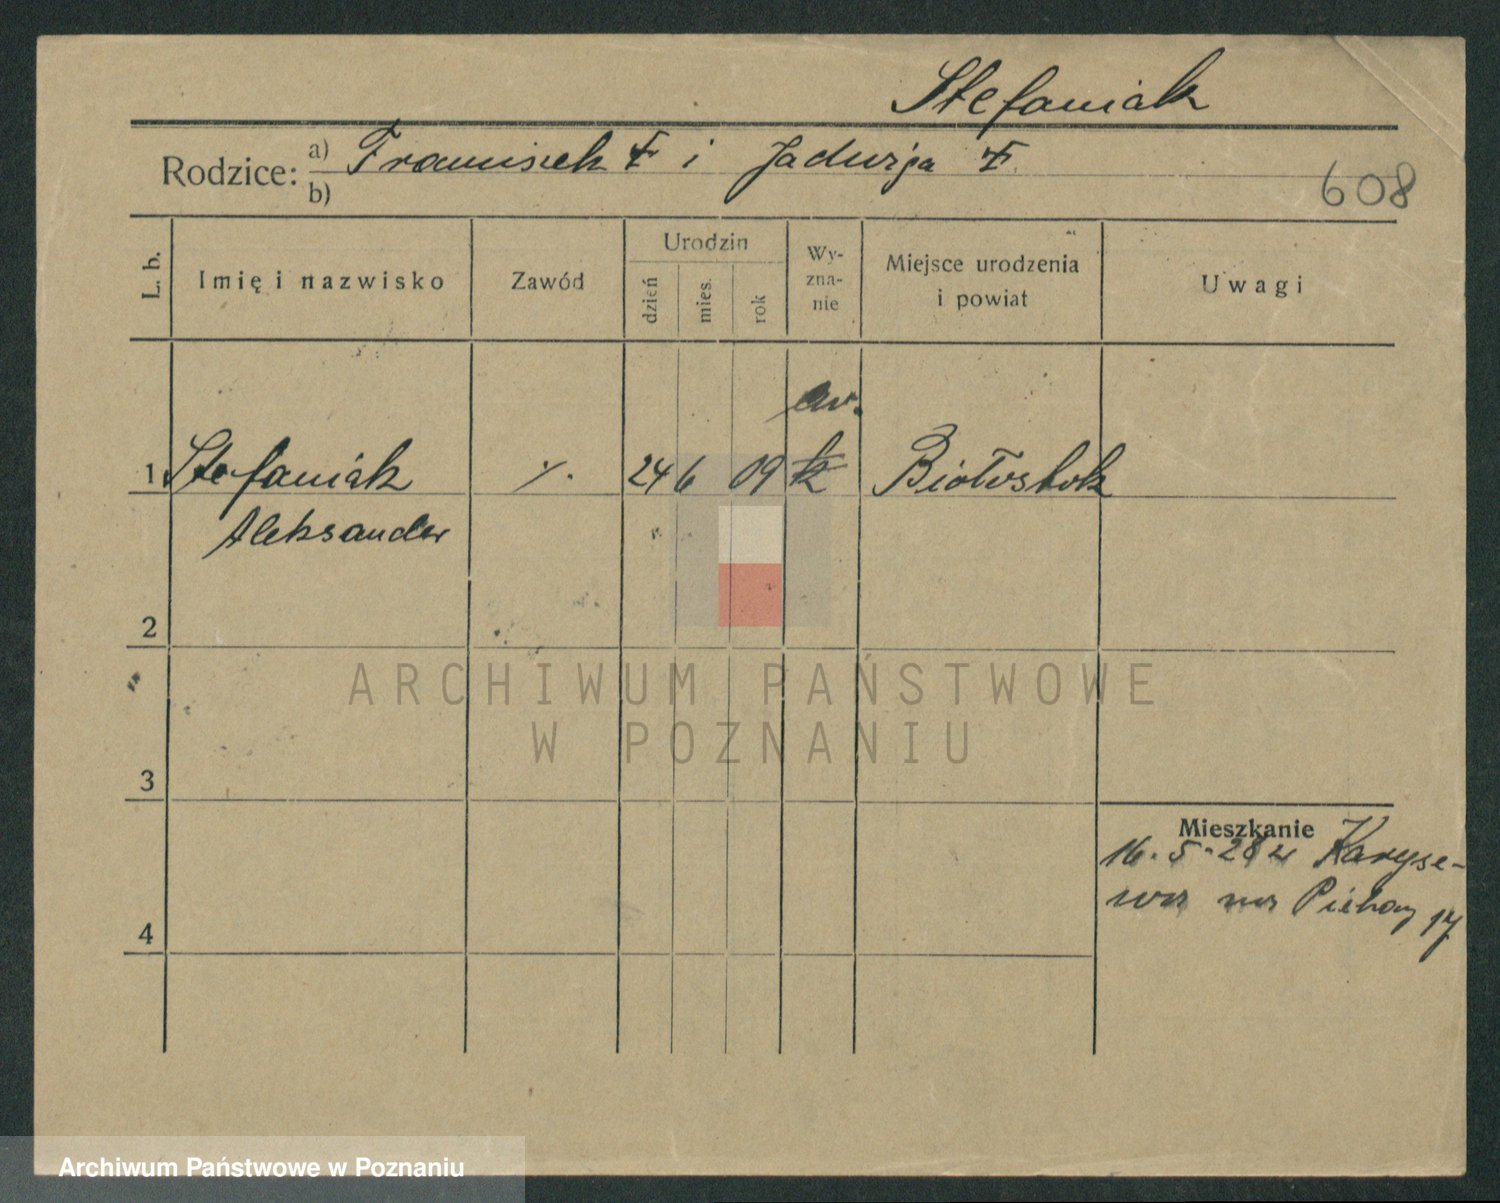 Stefaniak
Rodzice: a) Franciszek † i Jadwiga †
b)
608
L. b.
Imię i nazwisko
Zawód
Urodzin
dzień
mies.
rok
Wy-
zna-
nie
Miejsce urodzenia
i powiat
Uwagi
ew.
1 Stefaniak ·/. 24 6 09 k Białostok
Aleksander
2
3
4
Mieszkanie
16. 5. 28 z
17
ARCHIWUM PAŃSTWOWE
W POZNANIU
Archiwum Państwowe w Poznaniu